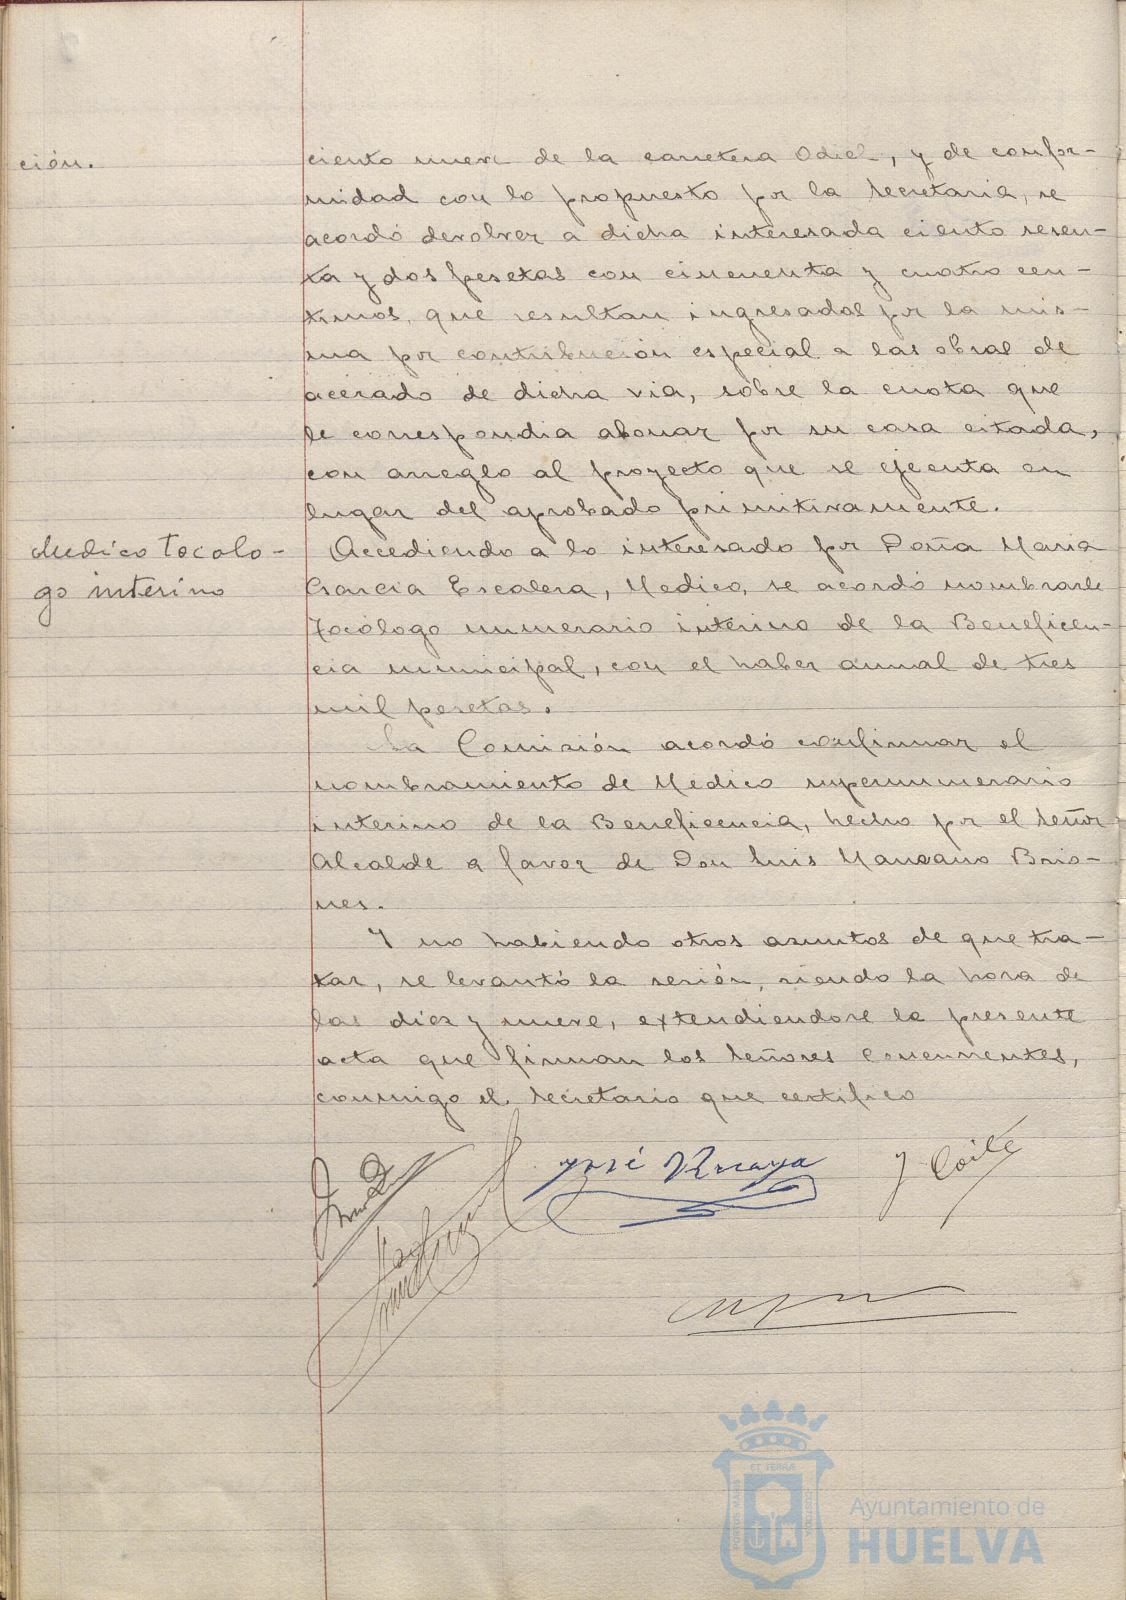 ción.
ciento nueve de la carretera Odiel, y de confor-
midad con lo propuesto por la Secretaria, se
acordó devolver a dicha interesada ciento sesen-
ta y dos pesetas con cincuenta y cuatro cen-
timos, que resultan ingresados por la mis-
ma por contribución especial a las obras de
acerado de dicha via, sobre la cuota que
le correspondia abonar por su casa citada,
con arreglo al proyecto que se ejecuta en
lugar del aprobado primitivamente.
Medico Tocolo-
go interino
Accediendo a lo interesado por Doña Maria
Garcia Escalera, Medico, se acordó nombrarle
Tocólogo numerario interino de la Beneficen-
cia municipal, con el haber anual de tres
mil pesetas.
La Comisión acordó confirmar el
nombramiento de Medico supernumerario
interino de la Beneficencia, hecho por el Señor
Alcalde a favor de Don Luis Manzano Brio-
nes.
Y no habiendo otros asuntos de que tra-
tar, se levantó la sesión, siendo la hora de
las diez y nueve, extendiendose la presente
acta que firman los Señores Concurrentes,
conmigo el Secretario que certifico
José
ET TERRÆ
PORTUS MARIS
CUSTODIA
Ayuntamiento de
HUELVA